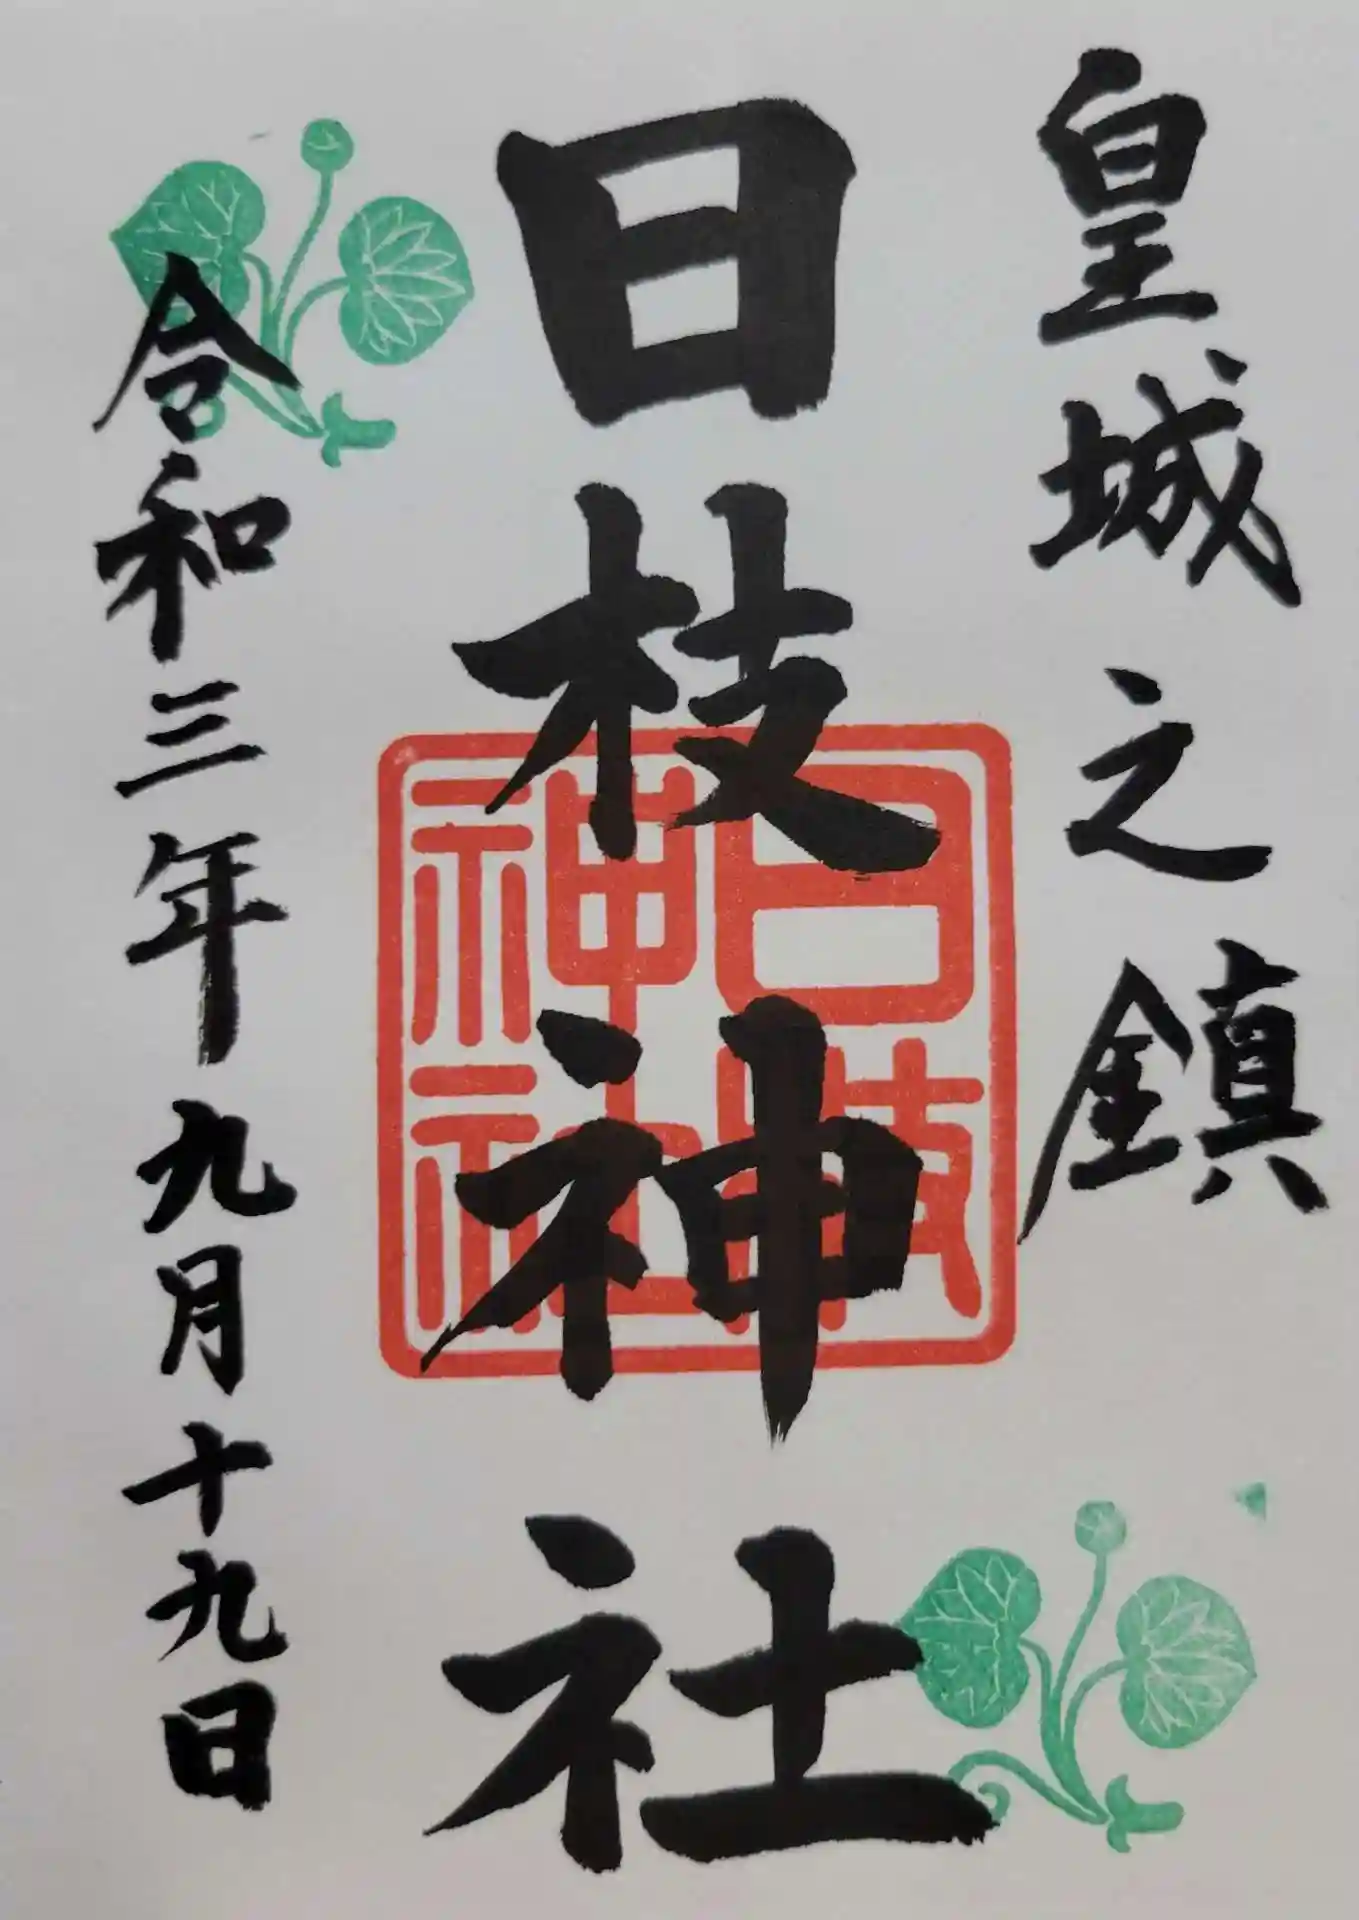 皇城之鎮
日枝神社
日枝
神社
令和三年九月十九日